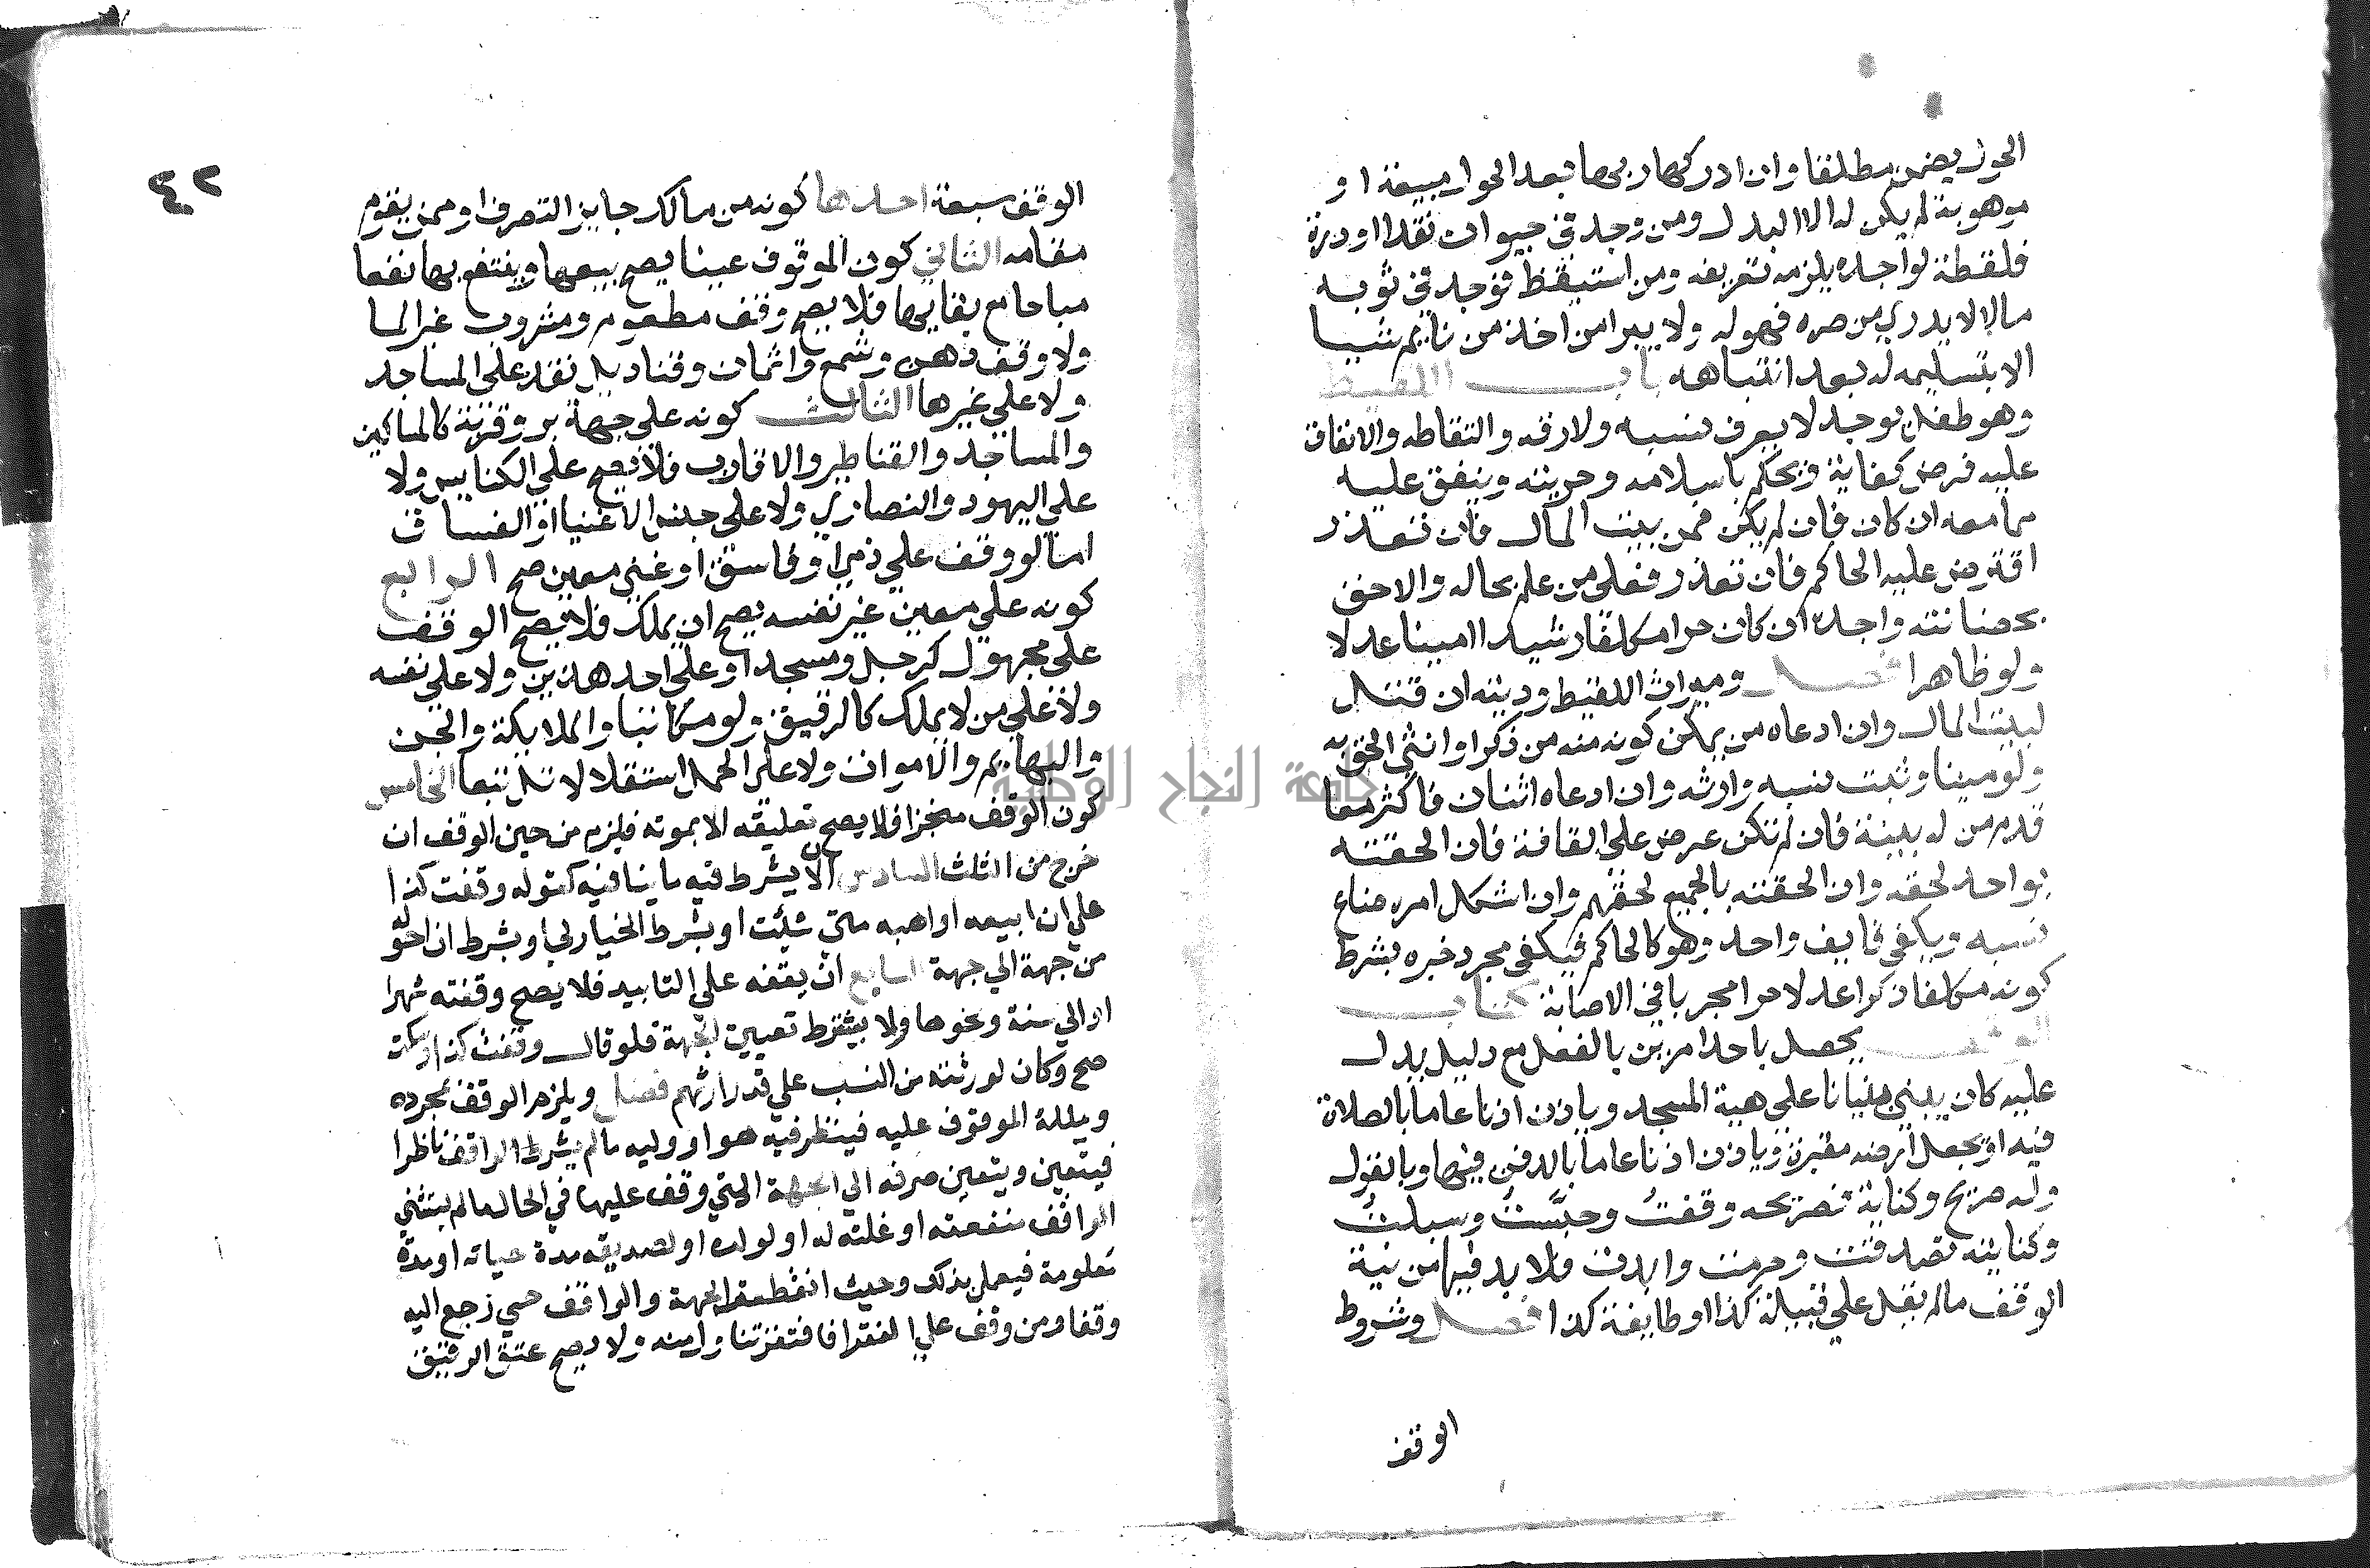 الحول يضمن مطلقا وان ادركها ربها بعد الحول مبيعة او
موهوبة لم يكن له الا البدل ومن وجد في حيوان نقدا او درة
فلقطة لواجده يلزمه تعريفه ومن استيقظ فوجد في ثوبه
مالا لا يدري من صره فهو له ولا يبرا من اخذ من نايم شيا
الا بتسليمه له بعد انتباهه باب اللقيط
وهو طفل يوجد لا يعرف نسبه ولا رقه والتقاطه والانفاق
عليه فرض كفاية ويحكم باسلامه وحريته وينفق عليه
مما معه ان كان فان لم يكن فمن بيت المال فان تعذر
اقترض عليه الحاكم فان تعذر فعلى من علم بحاله والاحق
بحضانته واجده ان كان حرا مكلفا رشيدا امينا عدلا
ولو ظاهرا فصل وميراث اللقيط وديته ان قتل
لبيت المال وان ادعاه من يمكن كونه منه من ذكر او انثى الحق به
ولو ميتا وثبت نسبه وارثه وان ادعاه اثنان فاكثر معا
قدم من له بينة فان لم تكن عرض على القافة فان الحقته
بواحد لحقه وان الحقته بالجميع لحقهم وان اشكل امره ضاع
نسبه ويكفي قايف واحد وهو كالحاكم فيكفي مجرد خبره بشرط
كونه مكلفا ذكرا عدلا حرا مجربا في الاصابة كتاب
الوقف يحصل باحد امرين بالفعل مع دليل يدل
عليه كان يبني بنيانا على هيية المسجد وياذن اذنا عاما بالصلاة
فيه او يجعل ارضه مقبرة وياذن اذنا عاما بالدفن فيها وبالقول
وله صريح وكناية فصريحه وقفت وحبست وسبلت
وكنايته تصدقت وحرمت وابدت فلا بد فيها من نية
الوقف مالم يقل على قبيلة كذا او طايفة كذا فصل وشروط
الوقف
٤٢
الوقف سبعة احدها كونه من مالك جايز التصرف او ممن يقوم
مقامه الثاني كون الموقوف عينا يصح بيعها وينتفع بها نفعا
مباحا مع بقايها فلا يصح وقف مطعوم ومشروب غير الما
ولا وقف دهن وشمع واثمان وقناديل نقد على المساجد
ولا على غيرها الثالث كونه على جهة بر وقربة كالمساكين
والمساجد والقناطر والاقارب فلا يصح على الكنايس ولا
على اليهود والنصارى ولا على جنس الاغنيا او الفساق
اما لو وقف على ذمي او فاسق او غني معين صح الرابع
كونه على معين غير نفسه يصح ان يملك فلا يصح الوقف
على مجهول كرجل ومسجد او على احد هذين ولا على نفسه
ولا على من لا يملك كالرقيق ولو مكاتبا والملايكة والجن
والبهايم والاموات ولا على الحمل استقلالا بل تبعا الخامس
كون الوقف منجزا فلا يصح تعليقه الا بموته فيلزم من حين الوقف ان
خرج من الثلث السادس الا يشرط فيه ما ينافيه كقوله وقفت كذا
على ان ابيعه او اهبه متى شئت او بشرط الخيار لي او بشرط ان احوله
من جهة الى جهة السابع ان يقفه على التابيد فلا يصح وقفته شهرا
او الى سنة ونحوها ولا يشترط تعيين الجهة فلو قال وقفت كذا وسكت
صح وكان لورثته من النسب على قدر ارثهم فصل ويلزم الوقف بمجرده
ويملكه الموقوف عليه فينظر فيه هو او وليه مالم يشرط الواقف ناظرا
فيتعين ويتعين صرفه الى الجهة التي وقف عليها في الحال مالم يستثني
الواقف منفعته او غلته له او لولده او لصديقه مدة حياته او مدة
معلومة فيعمل بذلك وحيث انقطعت الجهة والواقف حي رجع اليه
وقفا ومن وقف على الفقرا فافتقر تناول منه ولا يصح عتق الرقيق
جامعة النجاح الوطنية